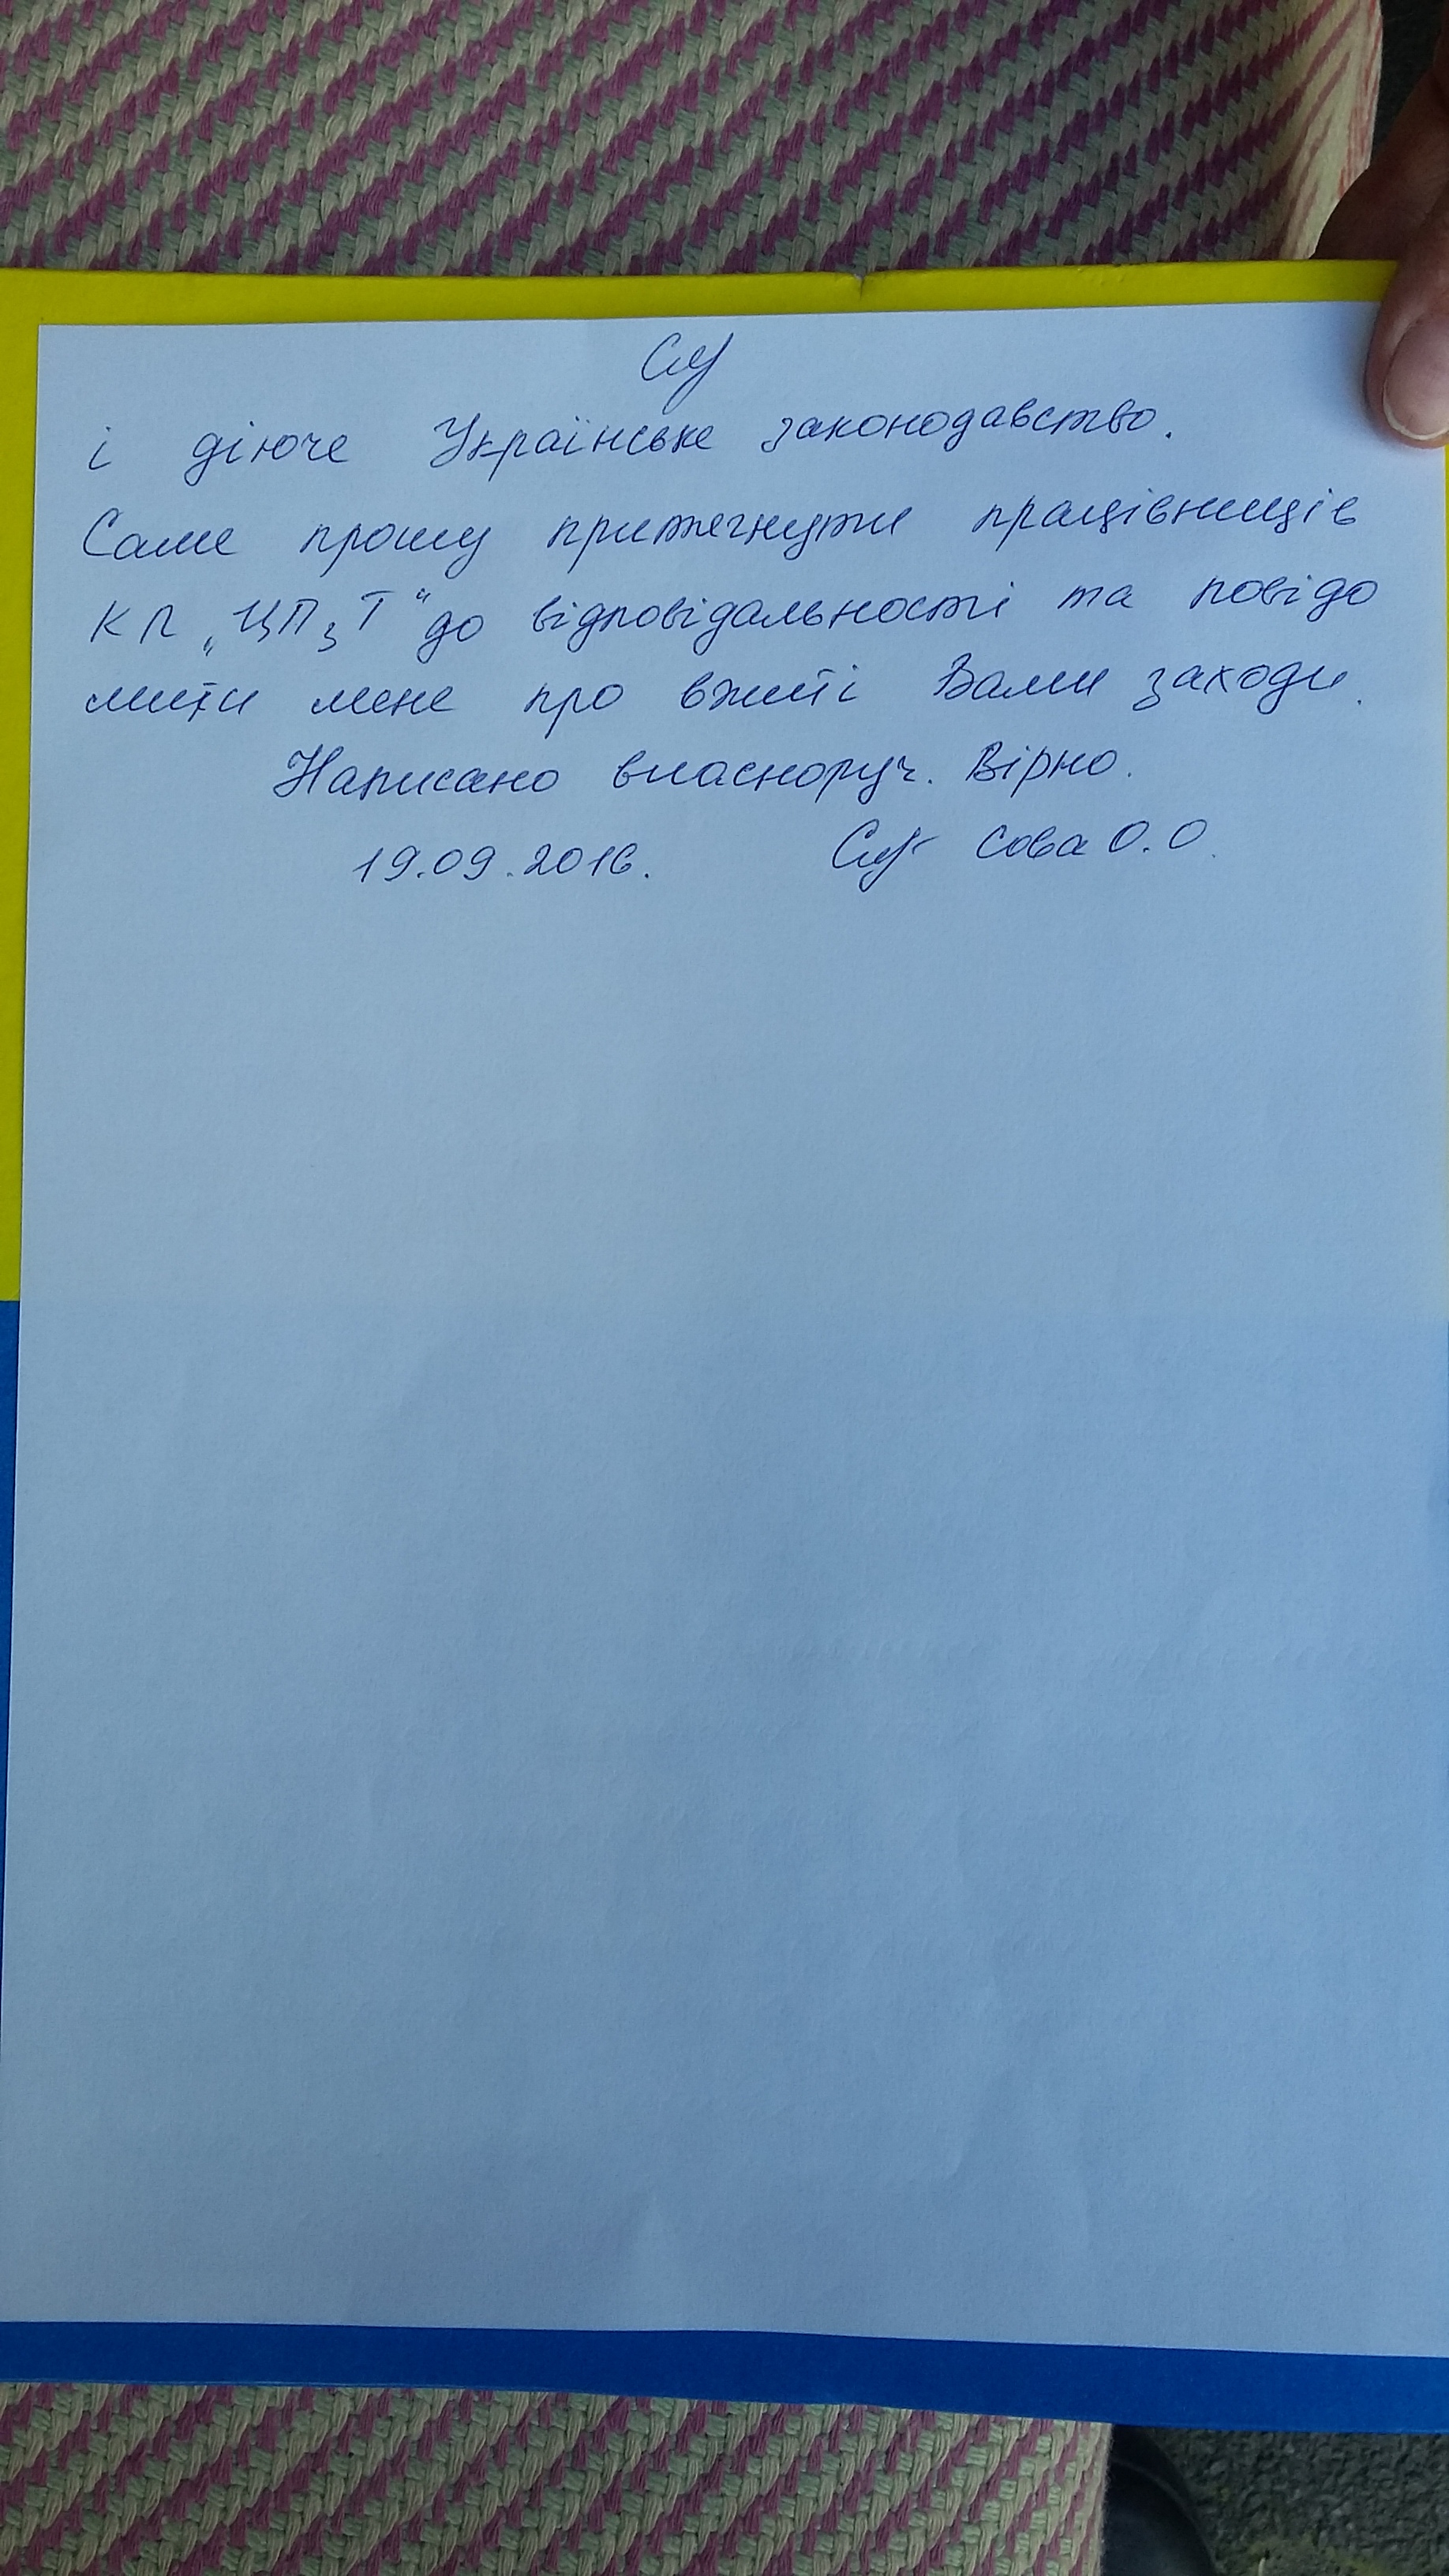 і діюче Українське законодавство.
Саме прошу притягнути працівниців
КП „ЦПзТ" до відповідальності та повідо
мити мене про вжиті Вами заходи.
Написано власноруч. Вірно.
19.09.2016. Сова О.О.